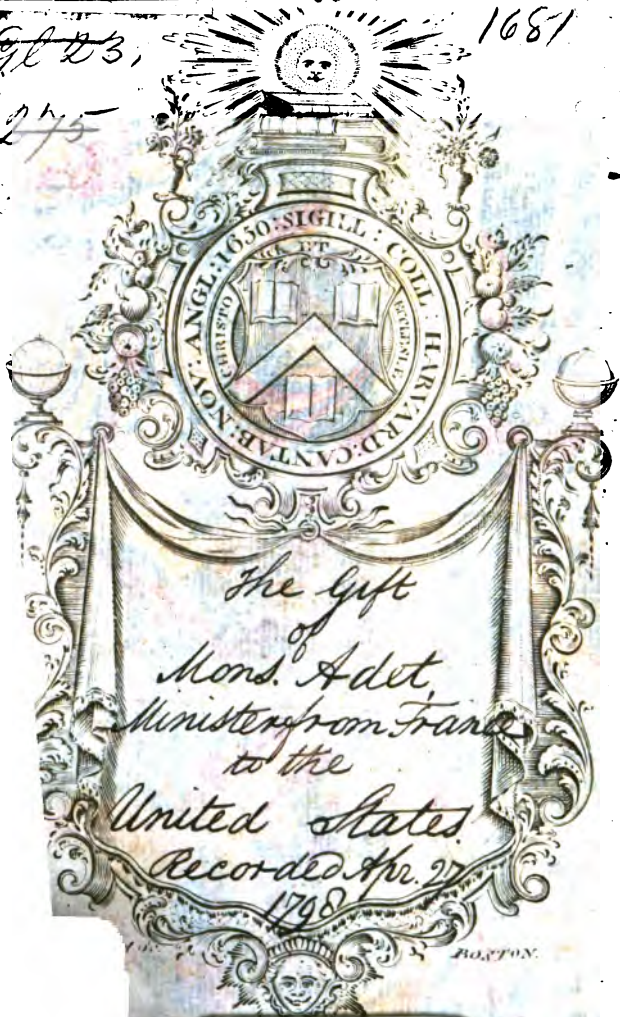 Gl 23,
1681
275
SIGILL : COLL : HARVARD : CANTAB : NOV : ANGL : 1650 :
ET
CHRISTO
ECCLESIÆ
The Gift
of
Mons. Adet,
Minister from France
to the
United States.
Recorded Apr. 27
1798
BOSTON.